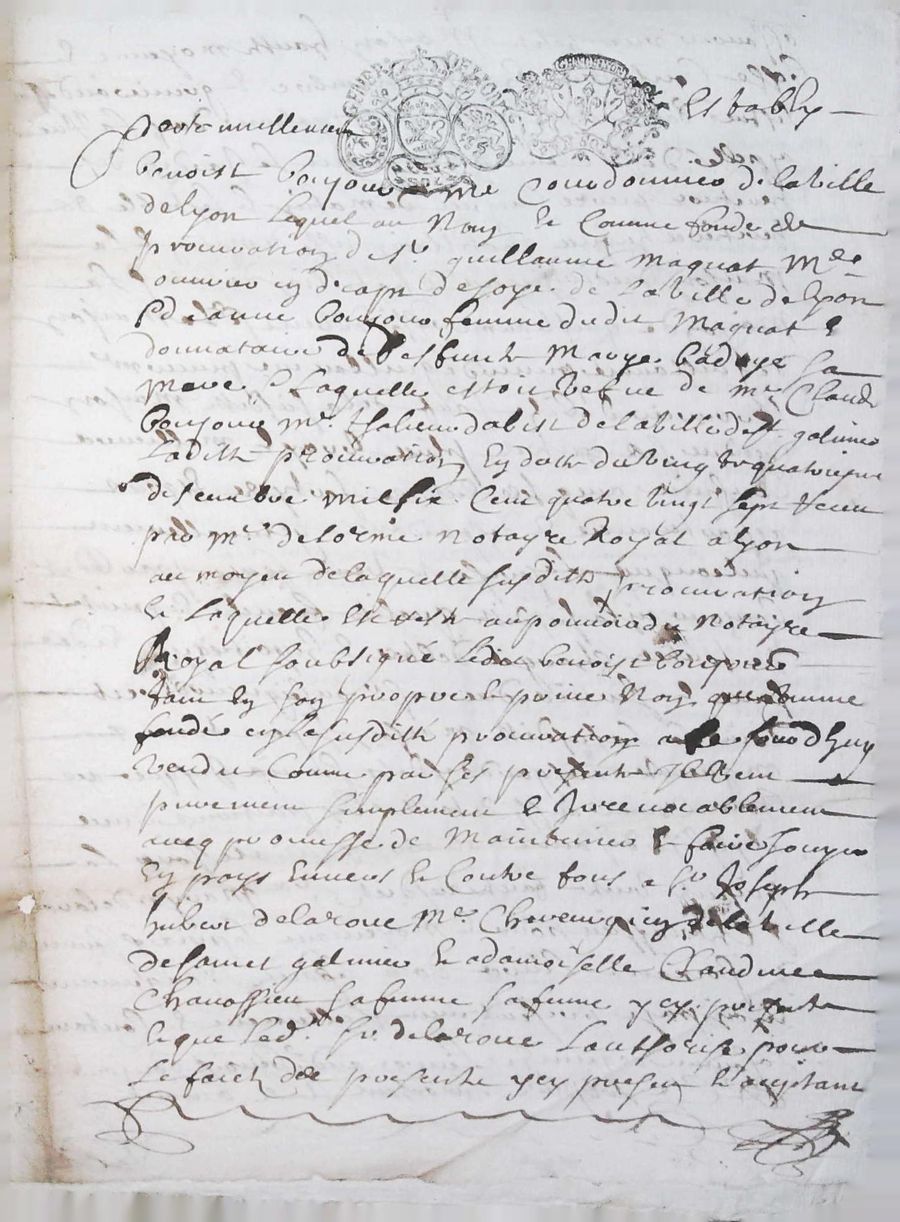 Establ
pardt
benoist boujou me Courdonnier de la Ville
de lyon lequel au Nom & Comme fondé de
procuration de Sr. guillaume maquat Mre
ouvrier en draps de soye de la Ville de lyon
& Jeanne boujou femme dudit Maquat &
donnataire de deffuncte Marye sa
mere & laquelle estoit Vefve de me Claude
boujou mr. de la Ville de St. galmier
Ladite procuration En datte du Vingt & quatriesme
de mil six Cent quatre Vingt Sept Receu
par mr. delorme notayre Royal a lyon
au moyen de laquelle susdite procuration
& Laquelle est au pouvoir du Notayre
Royal soubsigné ledit benoist boujou
tant En son propre & privé Nom que Comme
fondé En la susdite procuration a ce jourdhuy
Vendu Comme par ses presentes Il Vend
purement simplement & Irrevocablement
avecq promesse de Maintenir & faire Jouyr
En paix Envers & Contre tous a Sr. Joseph
hubert delaroue Me Chirurgien de la Ville
de sainct galmier & a damoiselle Claudine
Chanossieu sa femme sa femme ycy presente
& que led. Sr. delaroue L'authorise pour
Le faict des presentes ycy present & aceptant